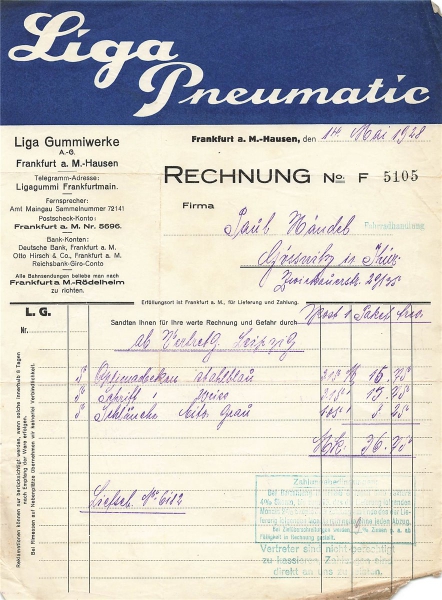 Liga
Pneumatic
Liga Gummiwerke
A.-G.
Frankfurt a. M.-Hausen
Telegramm-Adresse:
Ligagummi Frankfurtmain.
Fernsprecher:
Amt Maingau Sammelnummer 72141
Postscheck-Konto:
Frankfurt a. M. Nr. 5696.
Bank-Konten:
Deutsche Bank, Frankfurt a. M.
Otto Hirsch & Co., Frankfurt a. M.
Reichsbank-Giro-Conto
Alle Bahnsendungen beliebe man nach
Frankfurt a. M.-Rödelheim
zu richten.
Frankfurt a. M.-Hausen, den 14. Mai 1928
RECHNUNG No. F 5105
Firma
Paul Händel
Fahrradhandlung
Gössnitz in Thür.
Erfüllungsort ist Frankfurt a. M., für Lieferung und Zahlung.
L. G.
Nr.
Sandten Ihnen für Ihre werte Rechnung und Gefahr durch Post 1 Paket frco.
ab Leipzig
5 stahlblau 315 15.75
5 315 15.75
5 Schläuche Grau 105 5 25
Mk. 36.75
Liefsch. No 6182
Vertreter sind nicht berechtigt
zu kassieren Zahlungen alle
direkt an uns zu leisten.
Reklamationen können nur berücksichtigt werden, wenn solche innerhalb 8 Tagen
nach Empfang der Ware erfolgen.
Bei Firmaaen auf Nebenplätze übernehmen wir keinerlei Verbindlichkeit.